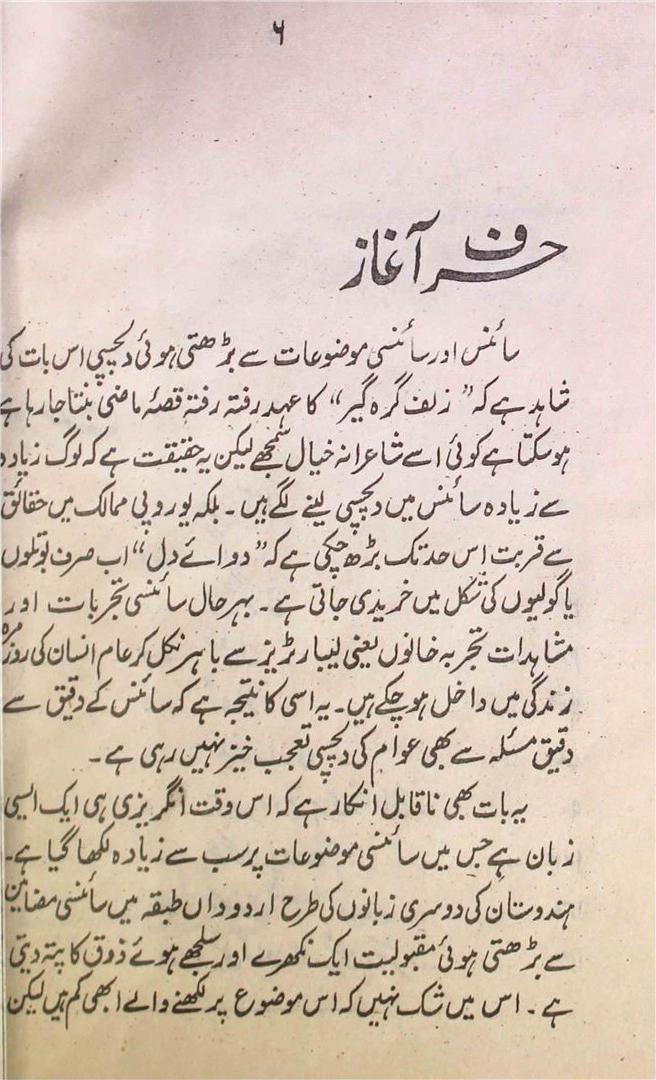 ۶
حرف آغاز
سائنس اور سائنسی موضوعات سے بڑھتی ہوئی دلچسپی اس بات کی
شاہد ہے کہ ”زلف گرہ گیر“ کا عہد رفتہ رفتہ قصۂ ماضی بنتا جا رہا ہے
ہو سکتا ہے کوئی اسے شاعرانہ خیال سمجھے لیکن یہ حقیقت ہے کہ لوگ زیادہ
سے زیادہ سائنس میں دلچسپی لینے لگے ہیں۔ بلکہ یوروپی ممالک میں حقائق
سے قربت اس حد تک بڑھ چکی ہے کہ ”دوائے دل“ اب صرف بوتلوں
یا گولیوں کی شکل میں خریدی جاتی ہے۔ بہرحال سائنسی تجربات اور
مشاہدات تجربہ خانوں یعنی لیبارٹریز سے باہر نکل کر عام انسان کی روزمرہ
زندگی میں داخل ہو چکے ہیں۔ یہ اسی کا نتیجہ ہے کہ سائنس کے دقیق سے
دقیق مسئلہ سے بھی عوام کی دلچسپی تعجب خیز نہیں رہی ہے۔
یہ بات بھی ناقابل انکار ہے کہ اس وقت انگریزی ہی ایک ایسی
زبان ہے جس میں سائنسی موضوعات پر سب سے زیادہ لکھا گیا ہے۔
ہندوستان کی دوسری زبانوں کی طرح اردو داں طبقہ میں سائنسی مضامین
سے بڑھتی ہوئی مقبولیت ایک نکھرے اور سلجھے ہوئے ذوق کا پتہ دیتی
ہے۔ اس میں شک نہیں کہ اس موضوع پر لکھنے والے ابھی کم ہیں لیکن